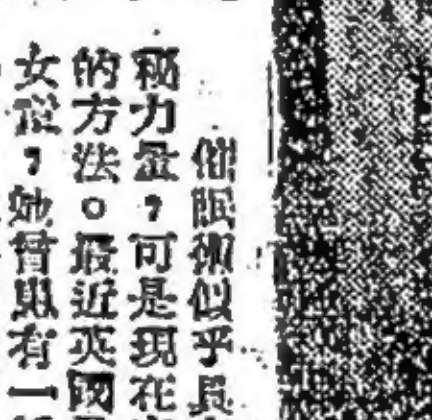 催眠術似乎具
秘力量，可是現在
的方法。最近英國
女說，她曾患有一